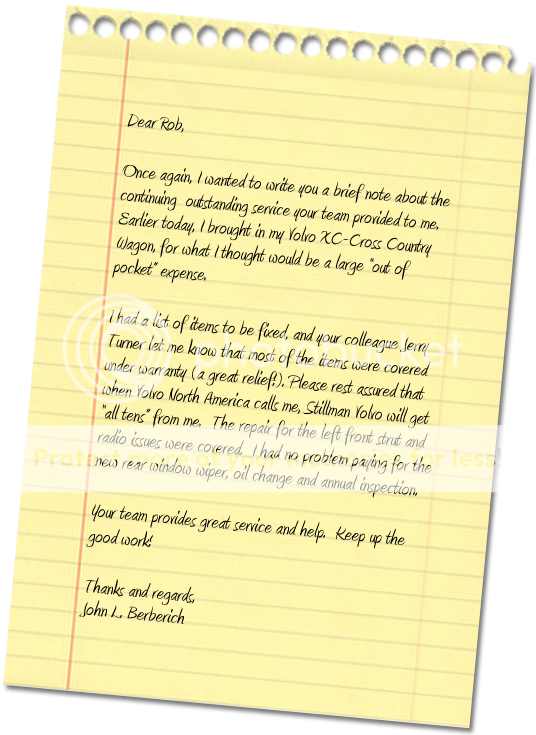 Dear Rob,
Once again, I wanted to write you a brief note about the
continuing outstanding service your team provided to me.
Earlier today, I brought in my Volvo XC-Cross Country
Wagon, for what I thought would be a large "out of
pocket" expense.
I had a list of items to be fixed, and your colleague Jerry
Turner let me know that most of the items were covered
under warranty (a great relief!). Please rest assured that
when Volvo North America calls me, Stillman Volvo will get
"all tens" from me. The repair for the left front strut and
radio issues were covered. I had no problem paying for the
new rear window wiper, oil change and annual inspection.
Your team provides great service and help. Keep up the
good work!
Thanks and regards,
John L. Berberich
photobucket
Protect more of your memories for less!